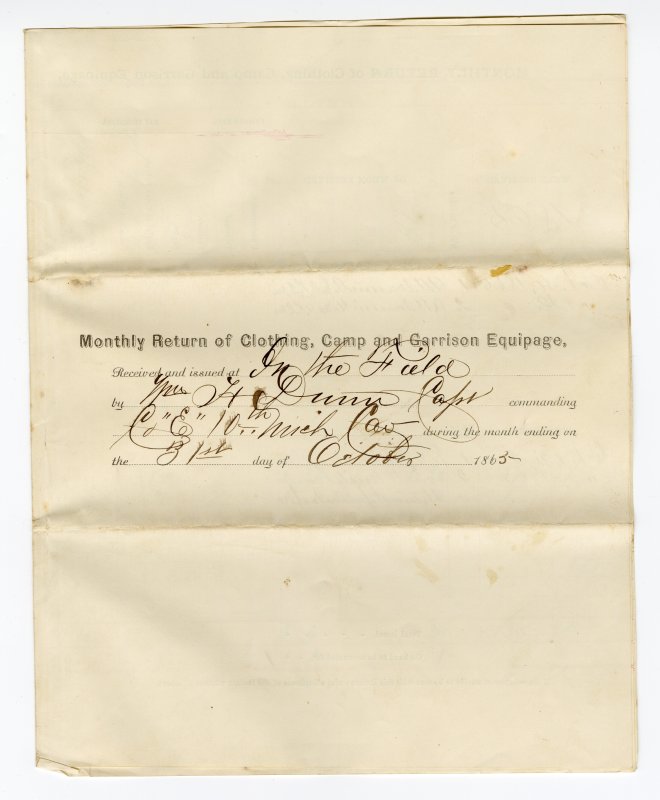 Monthly Return of Clothing, Camp and Garrison Equipage,
Received and issued at In the Field
by Wm H Dunn Capt commanding
Co "E" 10th Mich Cav during the month ending on
the 31st day of October 1865